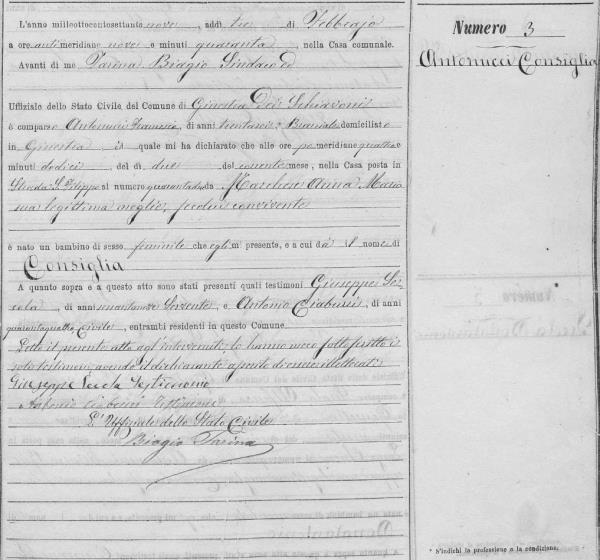 L'anno milleottocentosettantanove, addì tre di Febbrajo
a ore antimeridiane nove e minuti quaranta, nella Casa comunale.
Avanti di me Farina Biagio Sindaco ed
Uffiziale dello Stato Civile del Comune di Ginestra Dei Schiavoni
è comparso Antonucci, di anni trentasei, Bracciale domiciliato
in Ginestra il quale mi ha dichiarato che alle ore pomeridiane quattro e
minuti dodici del dì due del corrente mese, nella Casa posta in
Strada S. Filippo al numero da Marchese Anna Maria
sua legittima moglie, seco lui convivente
è nato un bambino di sesso femminile che egli mi presenta, e a cui dà il nome di
Consiglia
A quanto sopra e a questo atto sono stati presenti quali testimoni Giuseppe
, di anni Serv­ente, e Antonio, di anni
quarantaquattro Civile, entrambi residenti in questo Comune.
Letto il presente atto agl'intervenuti, lo hanno meco sottoscritto i
soli testimoni avendo il dichiarante asserito di essere illetterato
Giuseppe Testimonio
Antonio Testimonio
L'Uffiziale dello Stato Civile
Biagio Farina
Numero 3
Antonucci Consiglia
* S'indichi la professione o la condizione.